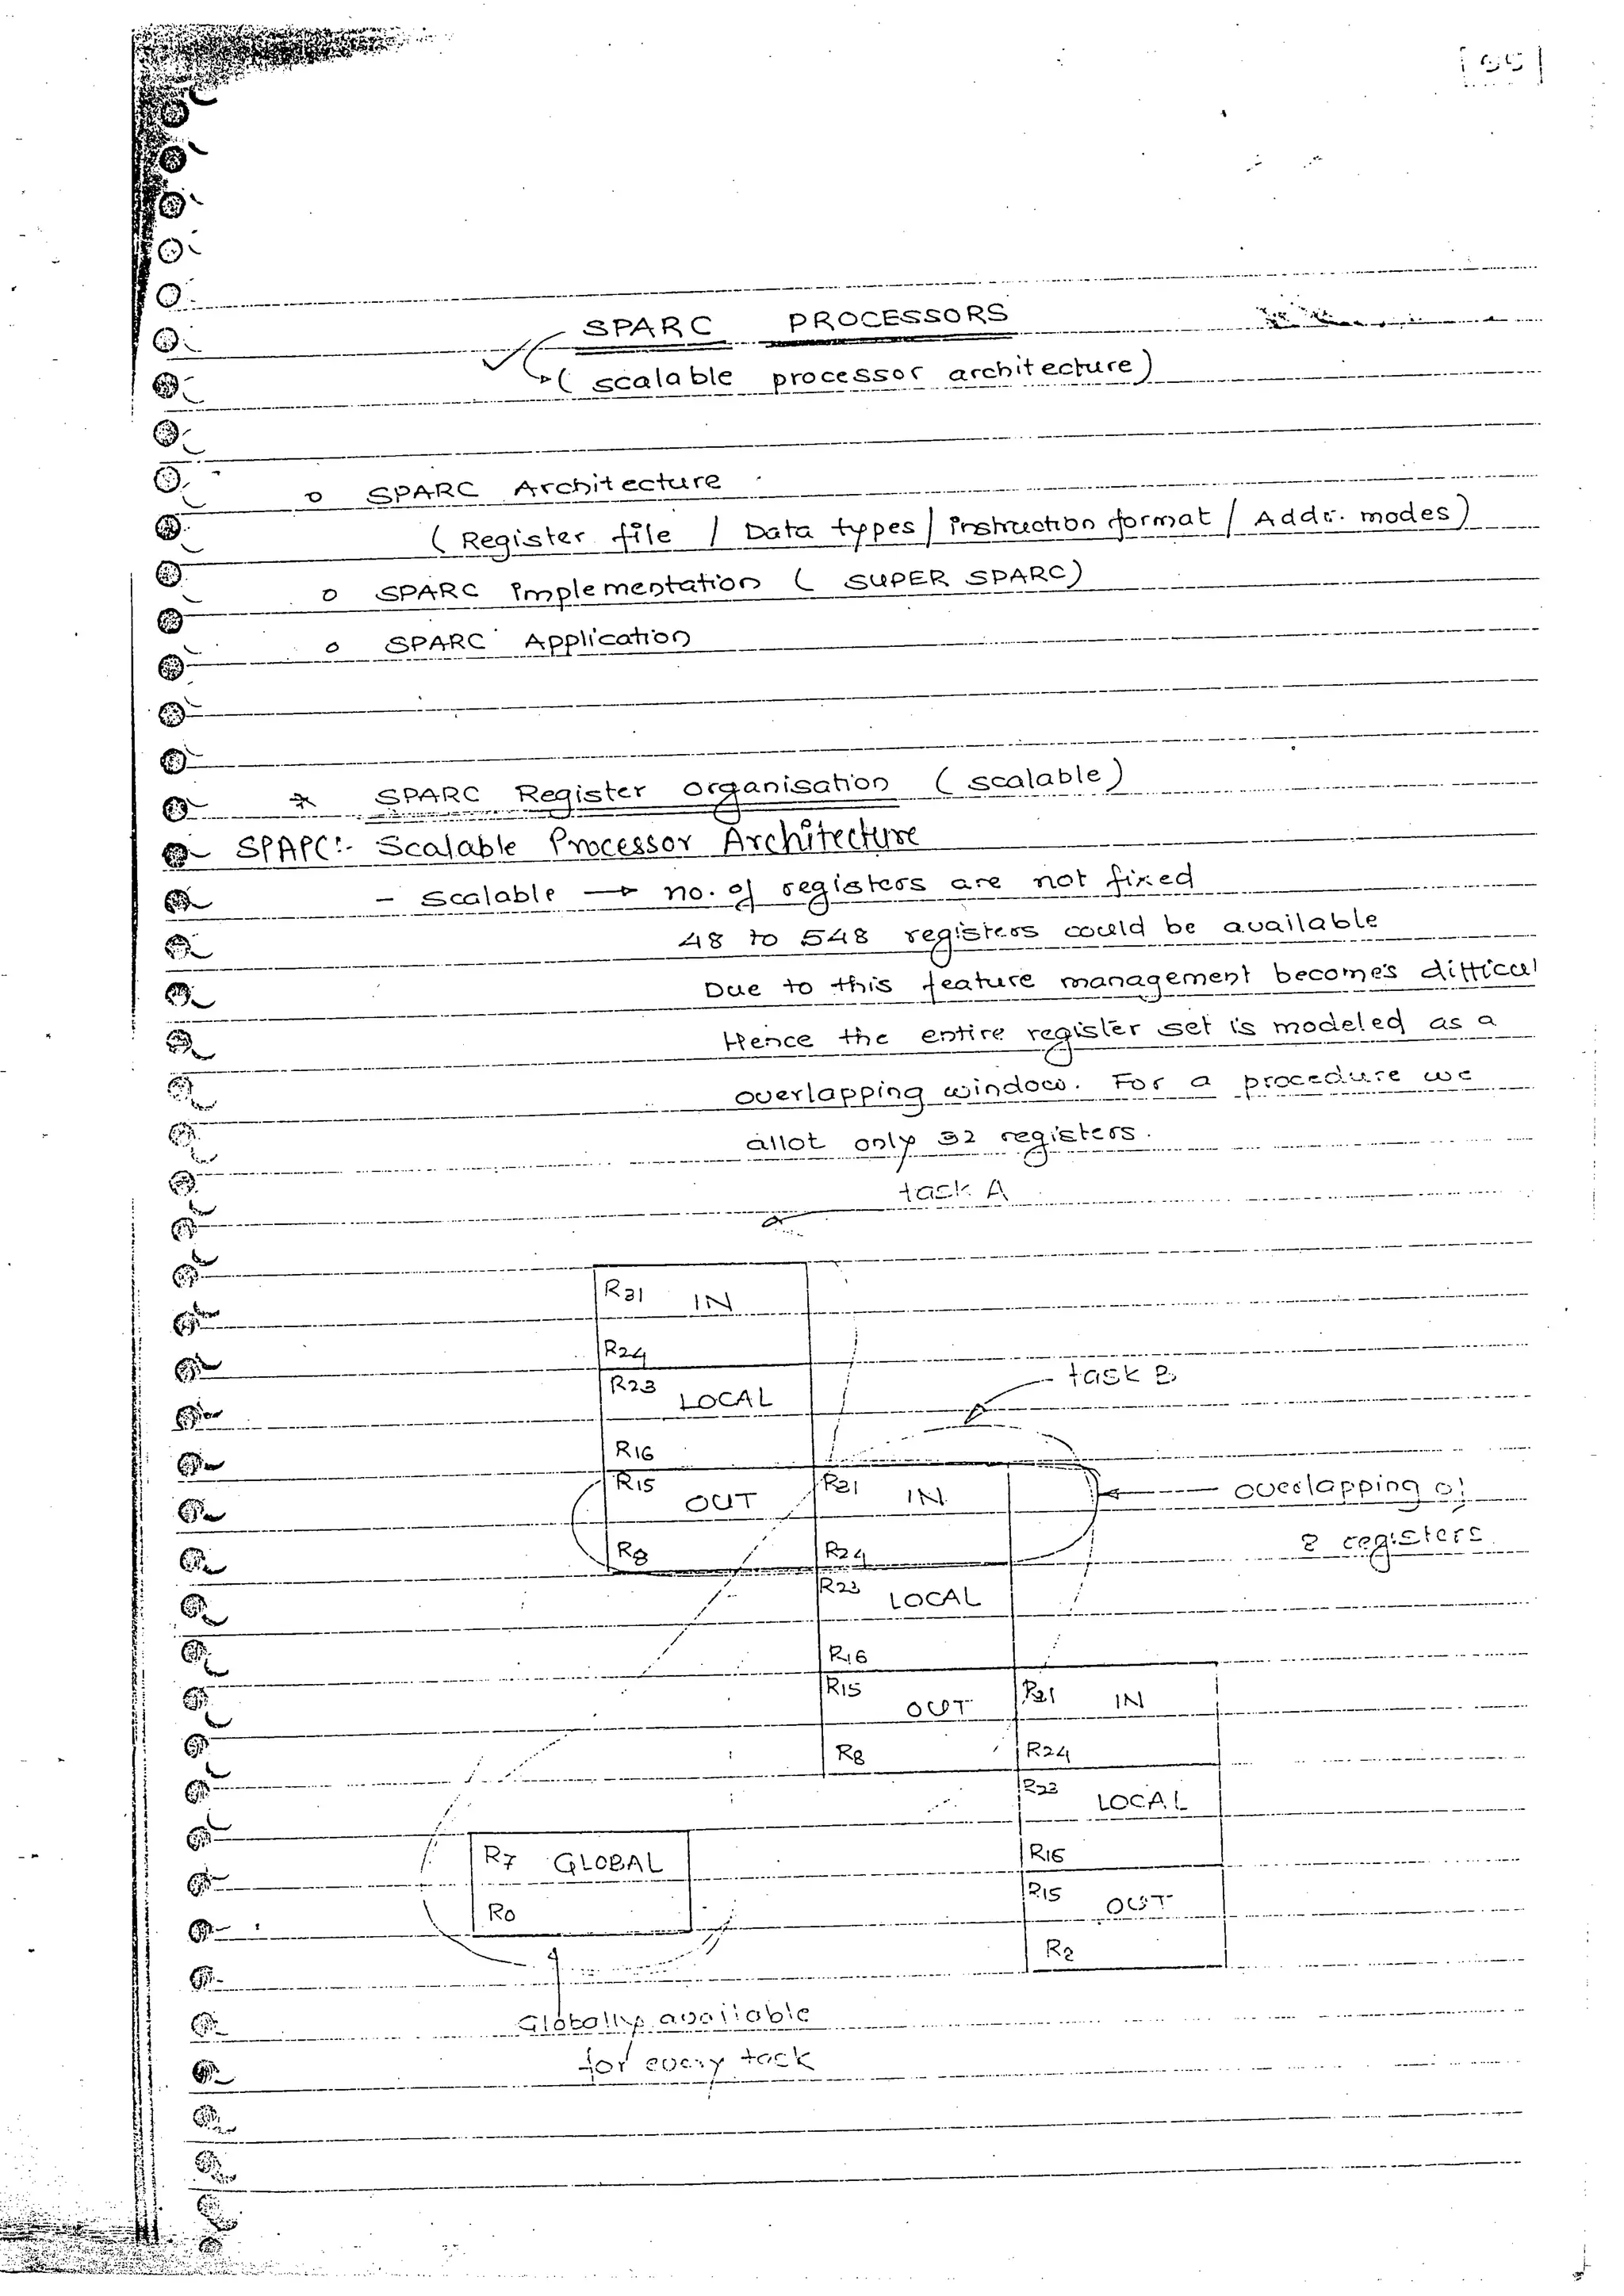 SPARC PROCESSORS
( scalable processor architecture )
o SPARC Architecture
( Register file / Data types / instruction format / Addr. modes )
o SPARC implementation ( SUPER SPARC )
o SPARC Application
* SPARC Register organisation ( scalable )
SPAPC:- Scalable Processor Architecture
- scalable → no. of registers are not fixed
48 to 548 registers could be available
Due to this feature management becomes difficul
Hence the entire register set is modeled as a
overlapping window. For a procedure we
allot only 32 registers.
task A
R31 IN
R24
R23 LOCAL
task B
R16
R15 OUT R31 IN
overlapping of
8 registers
R8 R24
R23 LOCAL
R16
R15 OUT R31 IN
R8 R24
R23 LOCAL
R7 GLOBAL R16
R0 R15 OUT
R8
Globally available
for every task